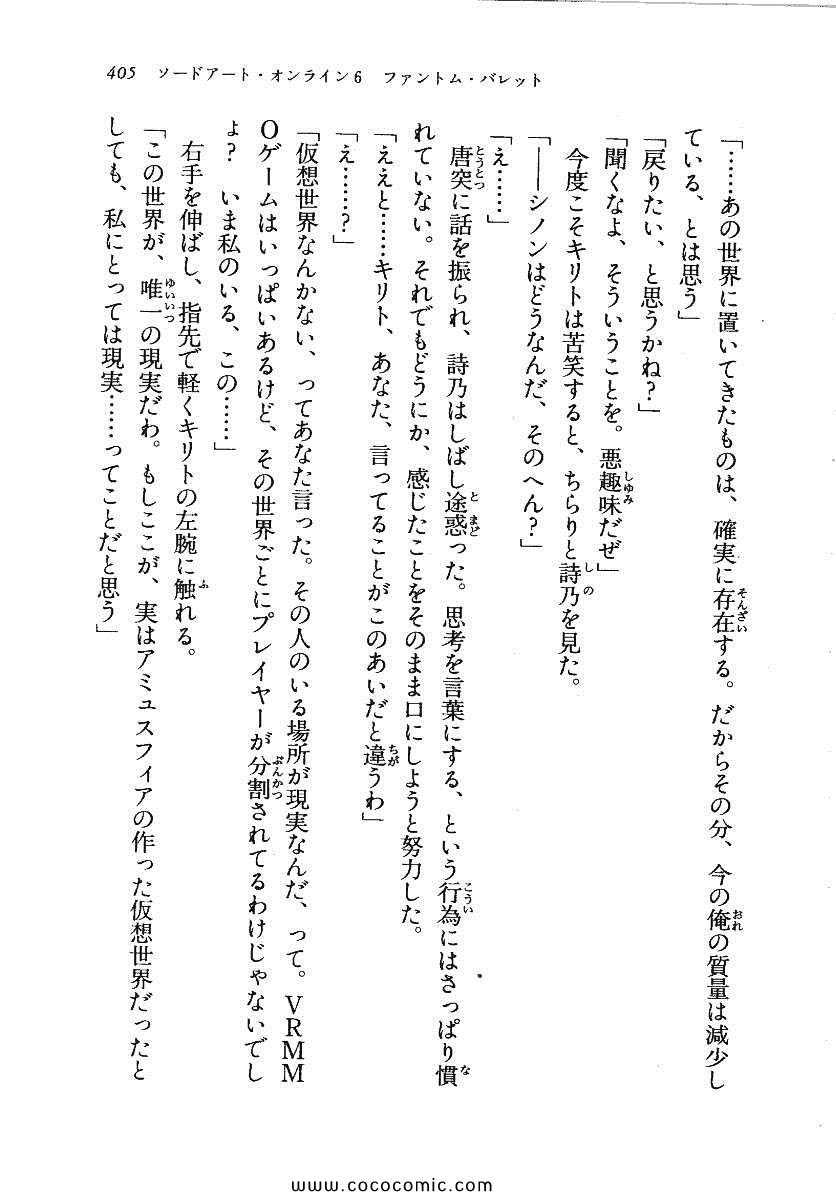 405　ソードアート・オンライン6　ファントム・バレット
「……あの世界に置いてきたものは、確実に存在する。だからその分、今の俺の質量は減少し
ている、とは思う」
「戻りたい、と思うかね？」
「聞くなよ、そういうことを。悪趣味だぜ」
今度こそキリトは苦笑すると、ちらりと詩乃を見た。
「――シノンはどうなんだ、そのへん？」
「え……」
唐突に話を振られ、詩乃はしばし途惑った。思考を言葉にする、という行為にはさっぱり慣
れていない。それでもどうにか、感じたことをそのまま口にしようと努力した。
「ええと……キリト、あなた、言ってることがこのあいだと違うわ」
「え……？」
「仮想世界なんかない、ってあなた言った。その人のいる場所が現実なんだ、って。VRMM
Oゲームはいっぱいあるけど、その世界ごとにプレイヤーが分割されてるわけじゃないでし
ょ？　いま私のいる、この……」
右手を伸ばし、指先で軽くキリトの左腕に触れる。
「この世界が、唯一の現実だわ。もしここが、実はアミュスフィアの作った仮想世界だったと
しても、私にとっては現実……ってことだと思う」
www.cococomic.com